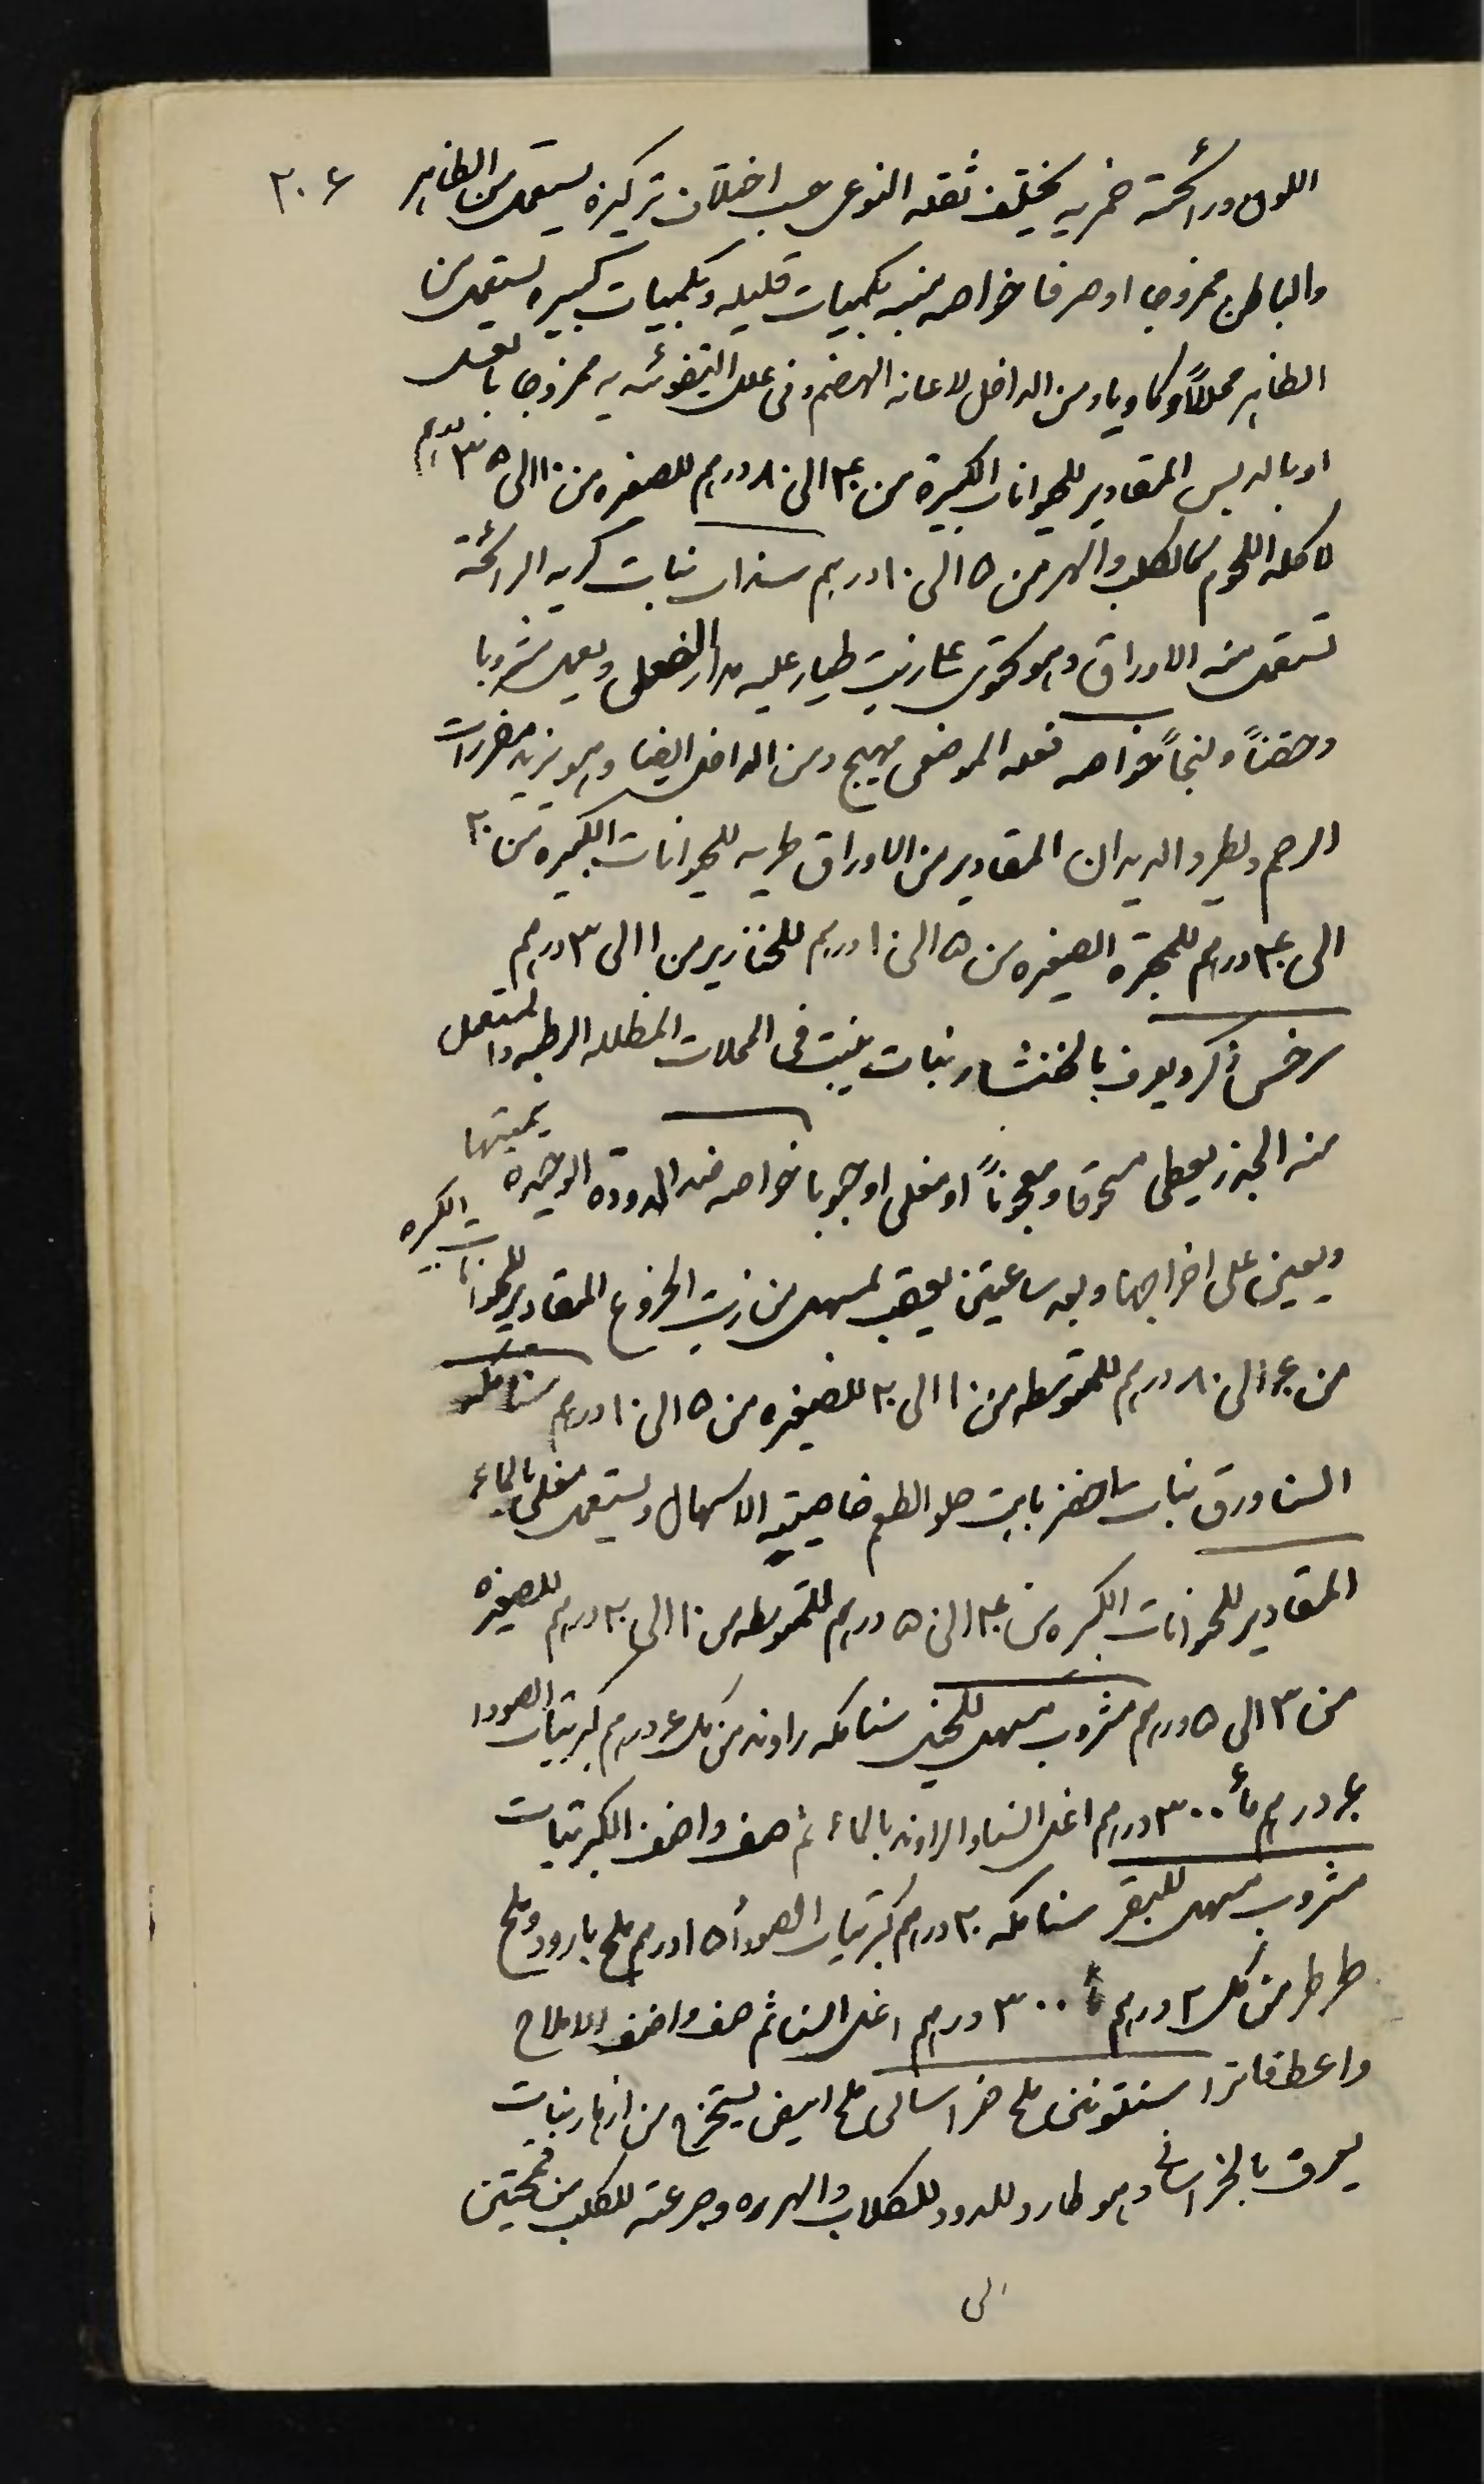 ٢٠٤
اللون ورائحة خمريه يختلف ثقله النوعى حسب اختلاف تركيزه يستعمل من الظاهر
والباطن ممزوجا او صرفا خواصه منبه بكميات قليله وبكميات كبيره يستعمل من
الظاهر محللاً وكاويا ومن الداخل لاعانة الهضم وفى علل التيفوئيديه ممزوجا بالعسل
او بالدبس المقادير للحيوانات الكبيرة من ٤٠ الى ٨٠ درهم للصغيره من ١٠ الى ٣٥ درهم
لاكله اللحوم كالكلب والهر من ٥ الى ١٠ درهم سذاب نبات كريه الرائحة
تستعمل منه الاوراق وهو يحتوى على زيت طيار عليه مدار الفعل ويعمل مشروبا
وحقناً ولبخاً خواصه فعله الموضعى مهيج ومن الداخل ايضا وهو يزيد مفرزات
الرحم ويطرد الديدان المقادير من الاوراق طريه للحيوانات الكبيره من ٢٠
الى ٤٠ درهم للمجترة الصغيره من ٥ الى ١٠ درهم للخنازير من ١ الى ٣ درهم
سرخس ذكر ويعرف بالخنشار نبات ينبت فى المحلات المظلله الرطبه والمستعمل
منه الجذر يعطى مسحوقا ومعجوناً او مغلى او حبوبا خواصه ضد الدودة الوحيده يميتها
ويعين على اخراجها وبعد ساعتين يعقب بمسهل من زيت الخروع المقادير للحيوانات الكبيره
من ٤٠ الى ٨٠ درهم للمتوسطه من ١٠ الى ٢٠ للصغيره من ٥ الى ١٠ درهم سنامكه
السنا ورق نبات اخضر باهت حلو الطعم خاصيته الاسهال ويستعمل مغلى بالماء
المقادير للحيوانات الكبيره من ٤٠ الى ٥٠ درهم للمتوسطه من ١٠ الى ٢٠ درهم للصغيره
من ٣ الى ٥ درهم مشروب مسهل للخيل سنامكه راوند من كل ٤ درهم كبريتات الصودا
٤٠ درهم ماء ٣٠٠ درهم اغل السنا والراوند بالماء ثم صف واضف الكبريتات
مشروب مسهل للبقر سنامكه ٢٠ درهم كبريتات الصودا ١٥ درهم ملح بارود وملح
طرطر من كل ٢ درهم ماء ٣٠٠ درهم اغل السنا ثم صف واضف الاملاح
واعط فاترا سنتونين ملح خراسانى ملح ابيض يستخرج من ازهار نبات
يعرف بالخراسانى وهو طارد للدود للكلاب والهرره وجرعته للكلب من قمحتين
الى